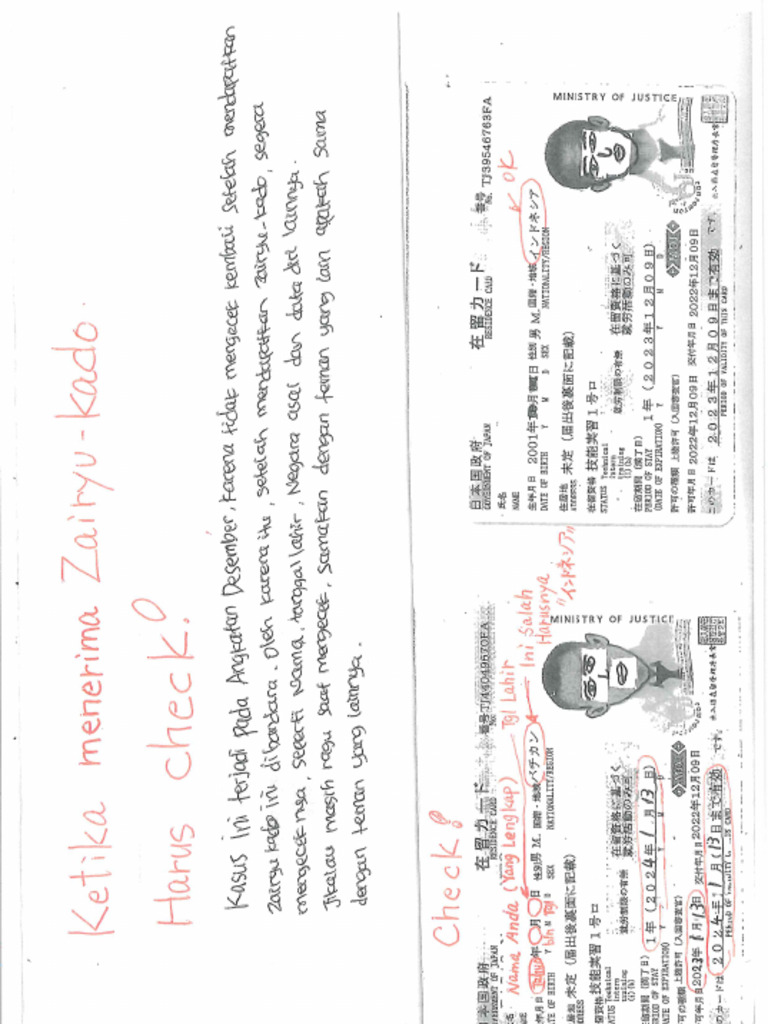 Ketika menerima Zairyu-kado.
Harus check!
Kasus ini terjadi pada Angkatan Desember, karena tidak mengecek kembali setelah mendapatkan
Zairyu kado ini di bandara. Oleh karena itu, setelah mendapatkan Zairyu-kado, segera
mengeceknya, seperti Nama, tanggal lahir, Negara asal dan data diri lainnya.
Jikalau masih ragu saat mengecek, samakan dengan teman yang lain apakah sama
dengan teman yang lainnya.
Check!
在留カード
RESIDENCE CARD
番号 TJ44049670EA
Nama Anda (Yang Lengkap)
Tgl Lahir
Ini Salah
Harusnya
"インドネシア"
Tahun年 月 日 性別 男 M. 国籍・地域 バチカン
bln Tgl
NATIONALITY/REGION
未定 (届出後裏面に記載)
技能実習1号ロ
在留資格に基づく
就労活動のみ可
1年 (2024年1月13日)
2023年1月13日 交付年月日 2022年12月09日
このカードは 2024年1月13日まで有効 です。
MINISTRY OF JUSTICE
日本国政府
GOVERNMENT OF JAPAN
在留カード
RESIDENCE CARD
番号 No. TJ39546763FA
OK
氏名
NAME
生年月日 2001年 月 日 性別 男 M. 国籍・地域 インドネシア
DATE OF BIRTH Y M D SEX NATIONALITY/REGION
住居地 未定 (届出後裏面に記載)
ADDRESS
在留資格 技能実習1号ロ
STATUS Technical Intern Training
就労制限の有無 在留資格に基づく就労活動のみ可
在留期間 (満了日) 1年 (2023年12月09日)
PERIOD OF STAY
(DATE OF EXPIRATION) Y M D
許可の種類 上陸許可 (入国審査官)
許可年月日 2022年12月09日 交付年月日 2022年12月09日
このカードは 2023年12月09日まで有効 です。
PERIOD OF VALIDITY OF THIS CARD
MINISTRY OF JUSTICE